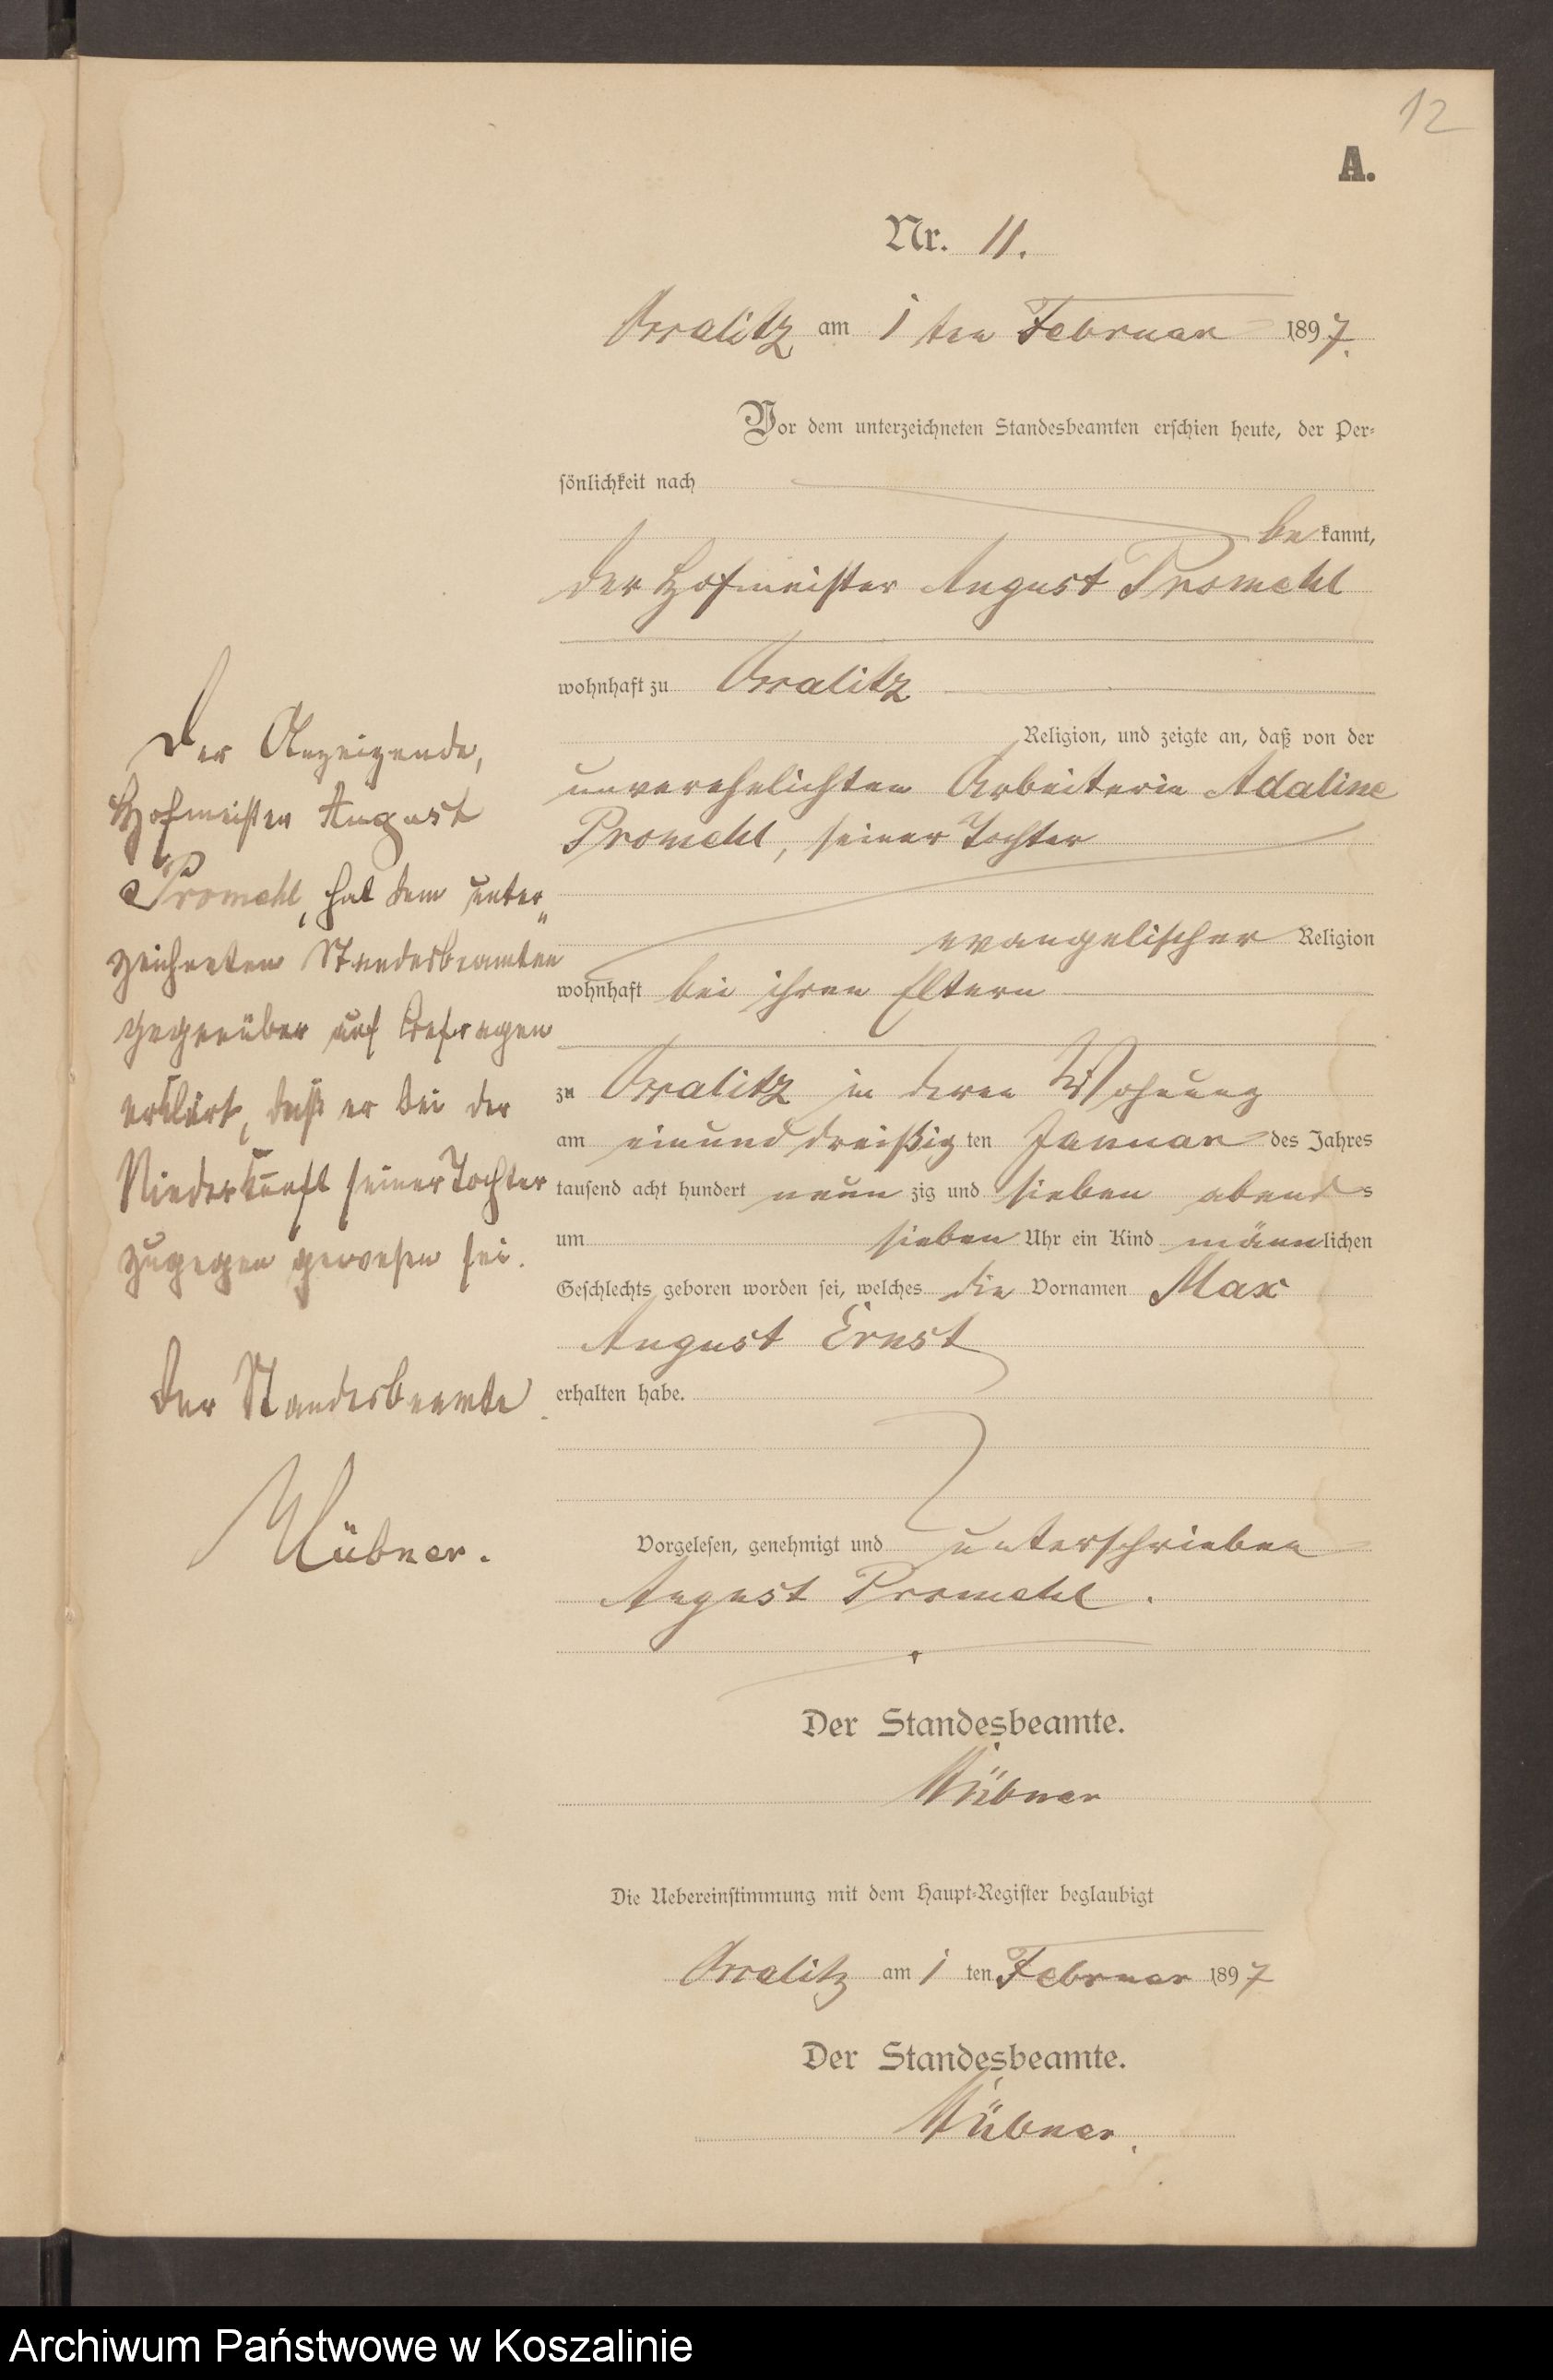 12
A.
Nr. 11.
am 1 ten Februar 1897.
Vor dem unterzeichneten Standesbeamten erschien heute, der Per-
sönlichkeit nach
be kannt,
der Hofmeister August Promehl
wohnhaft zu
Religion, und zeigte an, daß von der
unverehelichten Arbeiterin Adaline
Promehl, seiner Tochter
evangelischer Religion
wohnhaft bei ihren Eltern
zu in deren Wohnung
am einunddreißig ten Januar des Jahres
tausend acht hundert neun zig und sieben abends
um sieben Uhr ein Kind männlichen
Geschlechts geboren worden sei, welches die Vornamen Max
August Ernst
erhalten habe.
Vorgelesen, genehmigt und unterschrieben
August Promehl.
Der Standesbeamte.
Die Uebereinstimmung mit dem Haupt-Register beglaubigt
am 1 ten Februar 1897
Der Standesbeamte.
Der Anzeigende,
Hofmeister August
Promehl, hat dem unter„
zeichneten Standesbeamten
gegenüber auf Befragen
erklärt, daß er bei der
Niederkunft seiner Tochter
zugegen gewesen sei.
Der Standesbeamte
Archiwum Państwowe w Koszalinie